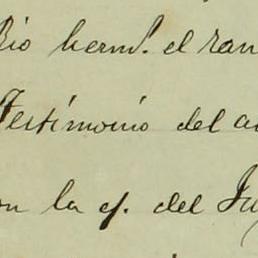 Rio herm.^o el ran
Testimonio del a
on la ef. del Ju